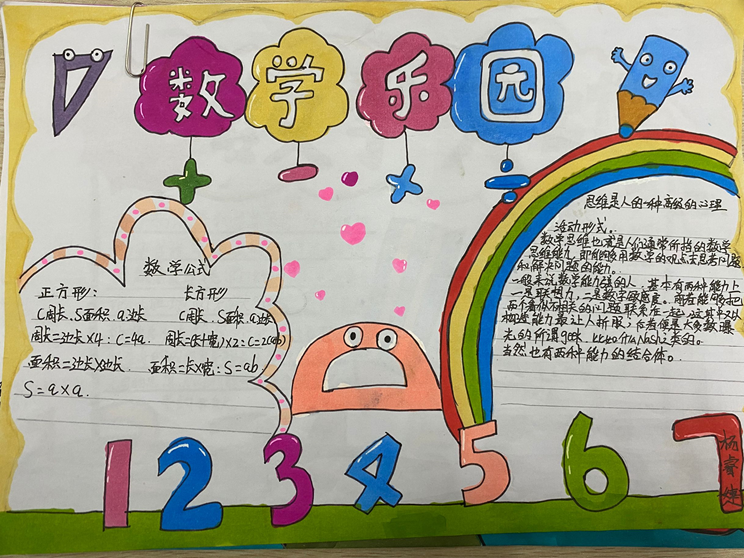 数学乐园
+ - × ÷
数学公式
正方形： 长方形
C周长、S面积、a边长 C周长、S面积、a边长
周长=边长×4：C=4a 周长=(长+宽)×2：C=2(ab)
面积=边长×边长 面积=长×宽：S=ab
S=a×a.
思维是人的一种高级的心理
活动形式。
数学思维也就是人们通常所指的数学
思维能力,即能够用数学的观点去思考问题
和解决问题的能力。
一般来说数学能力强的人,基本有两种能力上
一是联想力,二是数字敏感度。前者能够把
两个看似不相关的问题联系在一起,这其中又以
构造能力最让人折服;后者便是大多数曝
光的所谓geek,比如什么Nash之类的。
当然也有两种能力的结合体。
1 2 3 4 5 6 7
杨睿婕